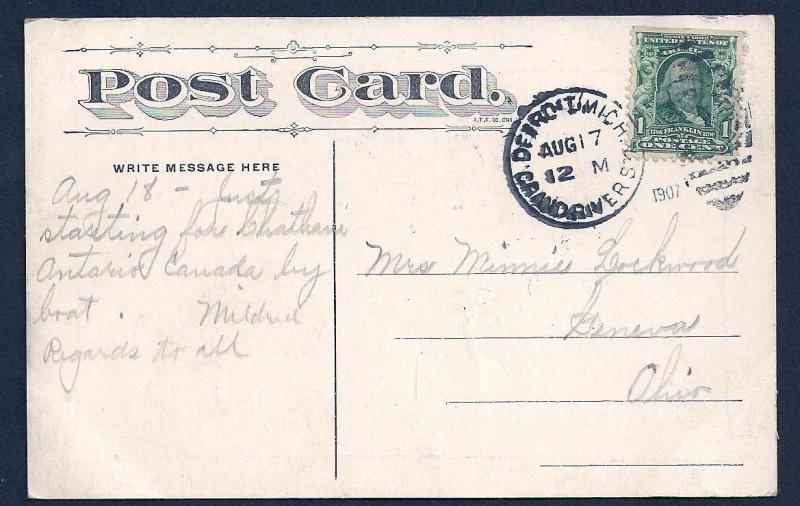 Post Card.
A.T.F. CO. CHI.
WRITE MESSAGE HERE
Aug 18 - Just
starting for Chatham
Antario Canada by
boat. Mildred
Regards to all
DETROIT, MICH.
AUG 17
12 M
GRAND RIVER STA
1907
UNITED STATES OF
1 1706 FRANKLIN 1790 1
POSTAGE
ONE CENT
Mrs Minnie Lockwood
Geneva
Ohio